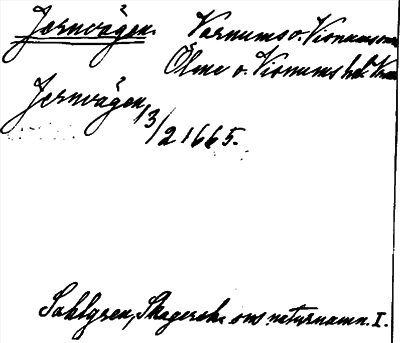 Jernvägen. Varnums o. Visnums
Ölme o. Visnums hd.
Jernvägen, 13/2 1665.
Sahlgren, Skagershs. oms naturnamn. I.